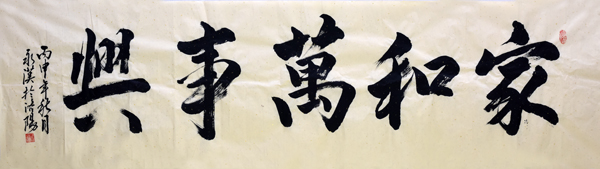 家和萬事興
丙申年秋月
永漢於濟陽